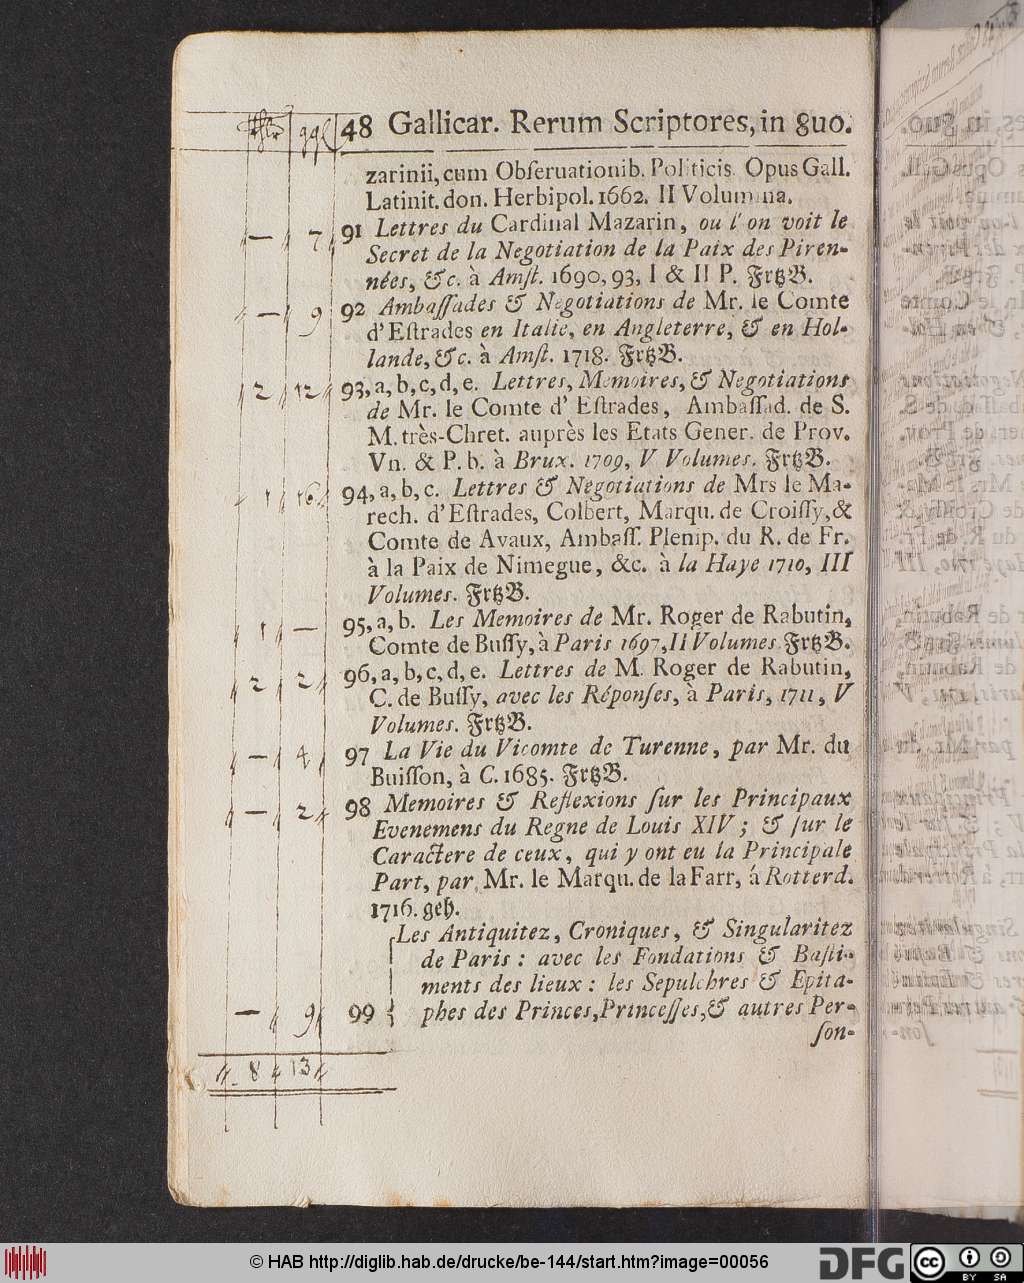 rthlr ggl 48 Gallicar. Rerum Scriptores, in 8uo.
zarinii, cum Obſeruationib. Politicis. Opus Gall.
Latinit. don. Herbipol. 1662. II Volumina.
— 7 91 Lettres du Cardinal Mazarin, ou l' on voit le
Secret de la Negotiation de la Paix des Piren-
nées, &c. à Amſt. 1690, 93, I & II P. FrtzB.
— 9 92 Ambaſſades & Negotiations de Mr. le Comte
d'Eſtrades en Italie, en Angleterre, & en Hol-
lande, &c. à Amſt. 1718. FrtzB.
2 12 93, a, b, c, d, e. Lettres, Memoires, & Negotiations
de Mr. le Comte d' Eſtrades, Ambaſſad. de S.
M. très-Chret. auprès les Etats Gener. de Prov.
Vn. & P. b. à Brux. 1709, V Volumes. FrtzB.
1 16 94, a, b, c. Lettres & Negotiations de Mrs le Ma-
rech. d'Eſtrades, Colbert, Marqu. de Croiſſy, &
Comte de Avaux, Ambaſſ. Plenip. du R. de Fr.
à la Paix de Nimegue, &c. à la Haye 1710, III
Volumes. FrtzB.
1 — 95, a, b. Les Memoires de Mr. Roger de Rabutin,
Comte de Buſſy, à Paris 1697, II Volumes FrtzB.
2 2 96, a, b, c, d, e. Lettres de M. Roger de Rabutin,
C. de Buſſy, avec les Réponſes, à Paris, 1711, V
Volumes. FrtzB.
— 4 97 La Vie du Vicomte de Turenne, par Mr. du
Buiſſon, à C. 1685. FrtzB.
— 2 98 Memoires & Reflexions ſur les Principaux
Evenemens du Regne de Louis XIV; & ſur le
Caractere de ceux, qui y ont eu la Principale
Part, par Mr. le Marqu. de la Farr, á Rotterd.
1716. geh.
Les Antiquitez, Croniques, & Singularitez
de Paris : avec les Fondations & Baſti-
ments des lieux : les Sepulchres & Epita-
— 9 99 phes des Princes, Princeſſes, & autres Per-
ſon-
8 13
© HAB http://diglib.hab.de/drucke/be-144/start.htm?image=00056
DFG cc BY SA